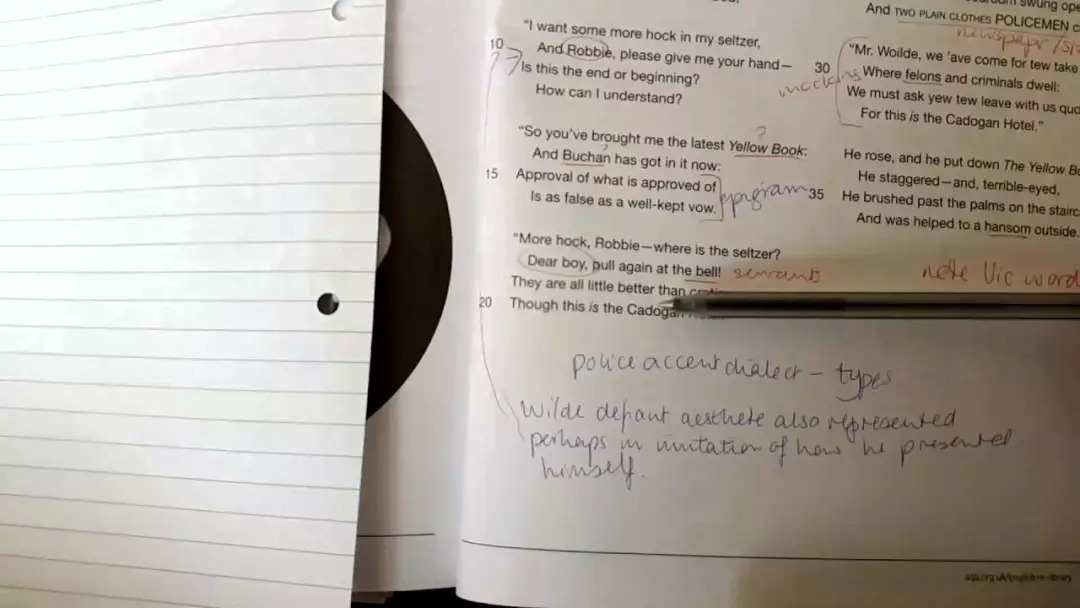 "I want some more hock in my seltzer,
10 And Robbie, please give me your hand—
Is this the end or beginning?
How can I understand?
"So you've brought me the latest Yellow Book:
?
And Buchan has got in it now:
?
15 Approval of what is approved of
Is as false as a well-kept vow.
epigram
"More hock, Robbie—where is the seltzer?
Dear boy, pull again at the bell!
servants
They are all little better than
20 Though this is the Cadogan
police accent dialect – types
Wilde defiant aesthete also represented
perhaps in imitation of how he presented
himself.
swung
And TWO PLAIN CLOTHES POLICEMEN
newspaper
"Mr. Woilde, we 'ave come for tew take
30 Where felons and criminals dwell:
mocking
We must ask yew tew leave with us
For this is the Cadogan Hotel."
He rose, and he put down The Yellow
He staggered—and, terrible-eyed,
35 He brushed past the palms on the
And was helped to a hansom outside.
note Vic
aqa.org.uk/english-e-library